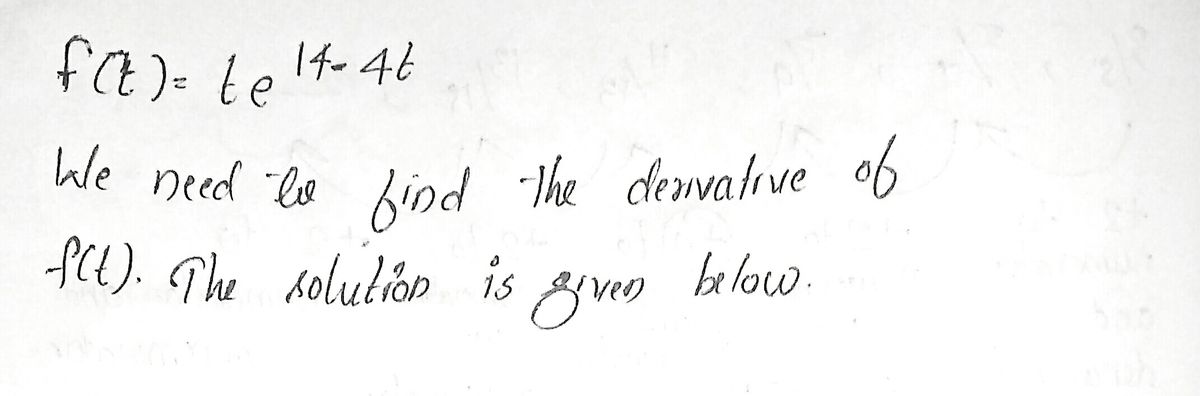 f(t)= te^14-4t
We need to find the derivative of
f(t). The solution is given below.